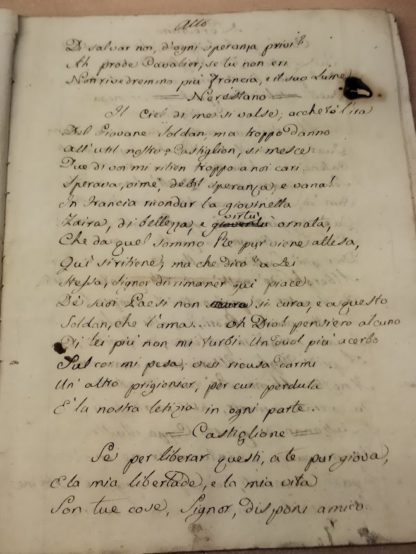 Atto
Di salvar noi, d'ogni speranza privi?
Ah prode Cavalier, se tu non eri
Non rivedremmo più Francia, e il suo Lume
Nerestano
Il Ciel di me si valse, acchetò l'ira
Del Giovane Soldan, ma troppo danno
All'util nostro o Castiglion, si mesce.
Due di voi mi ritien troppo a noi cari
Sperava, oimè, debil speranza, e vana!
In Francia rimondar la giovinetta
Zaira, di bellezza, e gioventù virtù ornata,
Che da quel sommo Re pur viene attesa,
Qui si ritiene; ma che dico? a Lei
Stessa, Signor di rimaner quì piace
De' suoi Paesi non si cura, e a questo
Soldan, che l'ama... oh Dio! pensiero alcuno
Di lei più non mi turbi. Un duol più acerbo
Sul cor mi pesa, ei si ricusa darmi
Un' altro prigionier, per cui perduta
E' la nostra letizia in ogni parte.
Castiglione
Se per liberar questi, a te pur giova,
E la mia libertade, e la mia vita
Son tue cose, Signor, disponi amico.